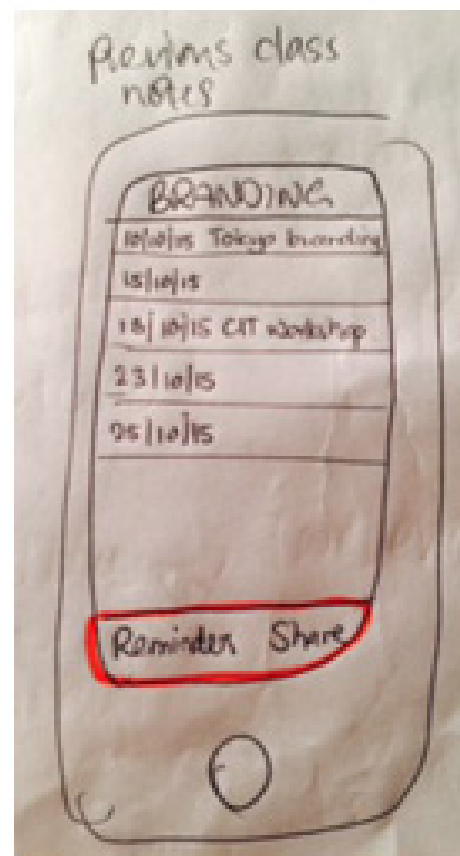 Previous class
notes
BRANDING
10/10/15 Tokyo branding
15/10/15
18/10/15 CIT workshop
23/10/15
25/10/15
Reminder Share